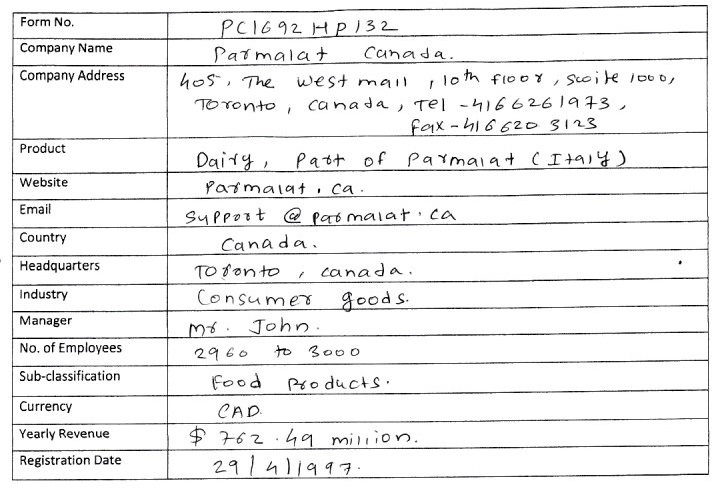 Form No. PC1692HP132
Company Name Parmalat Canada.
Company Address 405, The west mall, 10th floor, Suite 1000,
Toronto, Canada, Tel - 4166261973,
Fax - 416620 3123
Product Dairy, Part of Parmalat (Italy)
Website Parmalat.ca.
Email Support@parmalat.ca
Country Canada.
Headquarters Toronto, Canada.
Industry Consumer goods.
Manager Mr. John.
No. of Employees 2960 to 3000
Sub-classification Food Products.
Currency CAD.
Yearly Revenue $ 762.49 million.
Registration Date 29/4/1997.